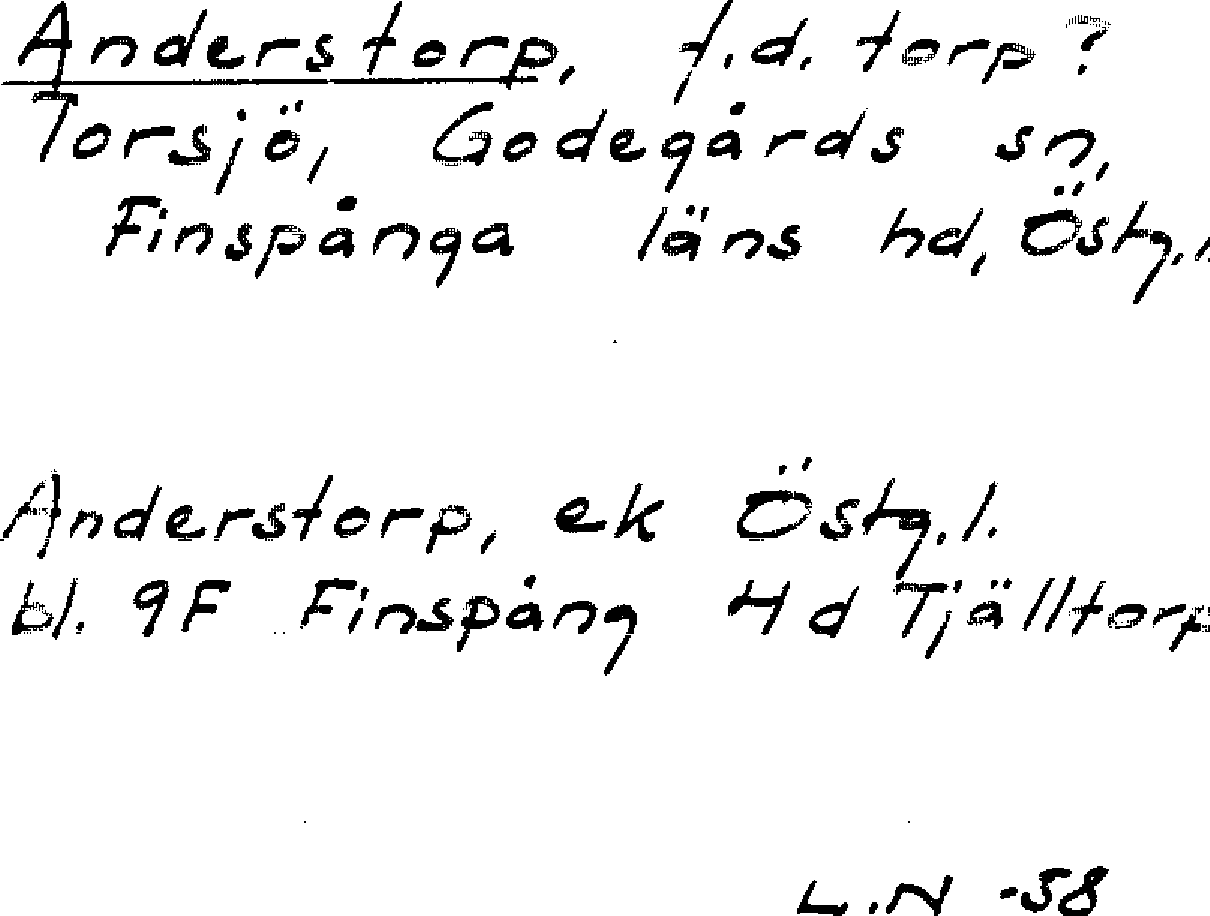 Anderstorp, f.d. torp?
Torsjö, Godegårds sn,
Finspånga läns hd, Östg.l.
Anderstorp, ek Östg.l.
bl. 9F Finspång 4 d Tjälltorp
L.N -58